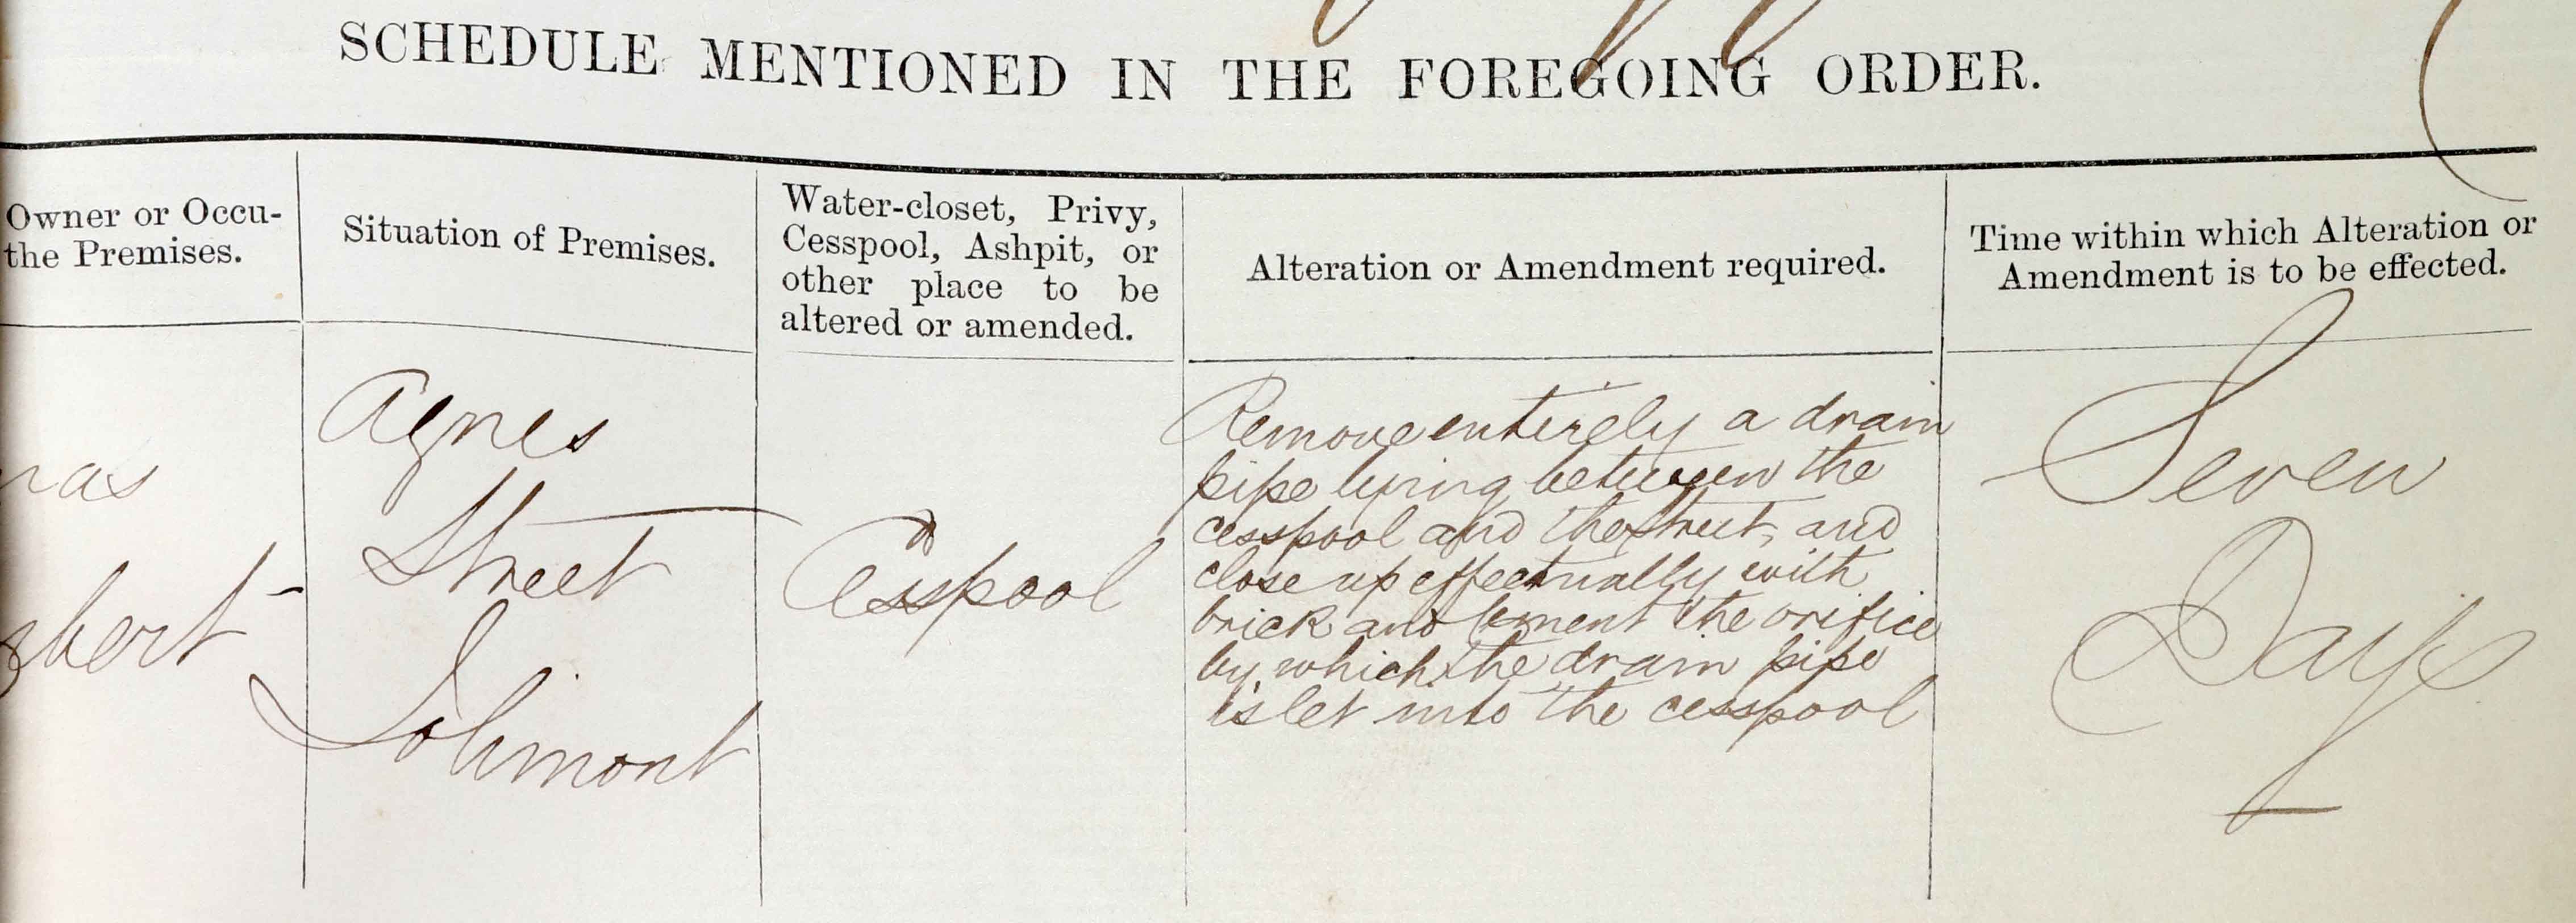 SCHEDULE MENTIONED IN THE FOREGOING ORDER.
Owner or Occu-
the Premises.
Situation of Premises.
Water-closet, Privy,
Cesspool, Ashpit, or
other place to be
altered or amended.
Alteration or Amendment required.
Time within which Alteration or
Amendment is to be effected.
Agnes
Street
Jolimont
Cesspool
Remove entirely a drain
pipe lying between the
cesspool and the street, and
close up effectually with
brick and cement the orifice
by which the drain pipe
is let into the cesspool
Seven
Days